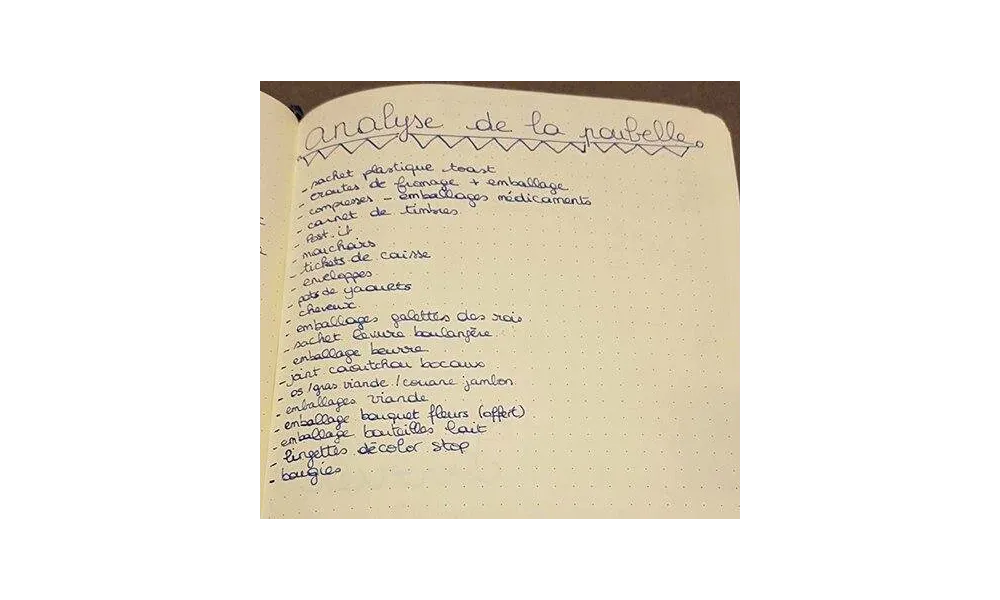 analyse de la poubelle
- sachet plastique toast
- croutes de fromage + emballage
- compresses - emballages médicaments
- carnet de timbres
- Post-it
- mouchoirs
- tickets de caisse
- enveloppes
- pots de yaourts
- cheveux
- emballages galettes des rois
- sachet levure boulangère
- emballage beurre
- joint caoutchou bocaux
- os / gras viande / couane jambon
- emballages viande
- emballage bouquet fleurs (offert)
- emballage bouteilles lait
- lingettes décolor stop
- bougies